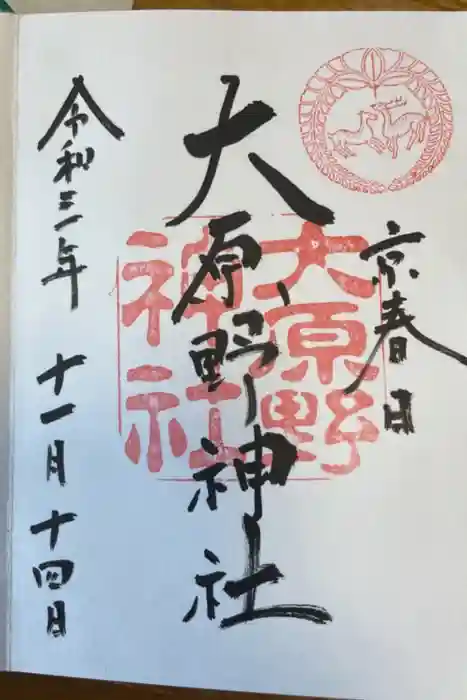 京春日
大原野神社
大原野
神社
令和三年 十一月 十四日